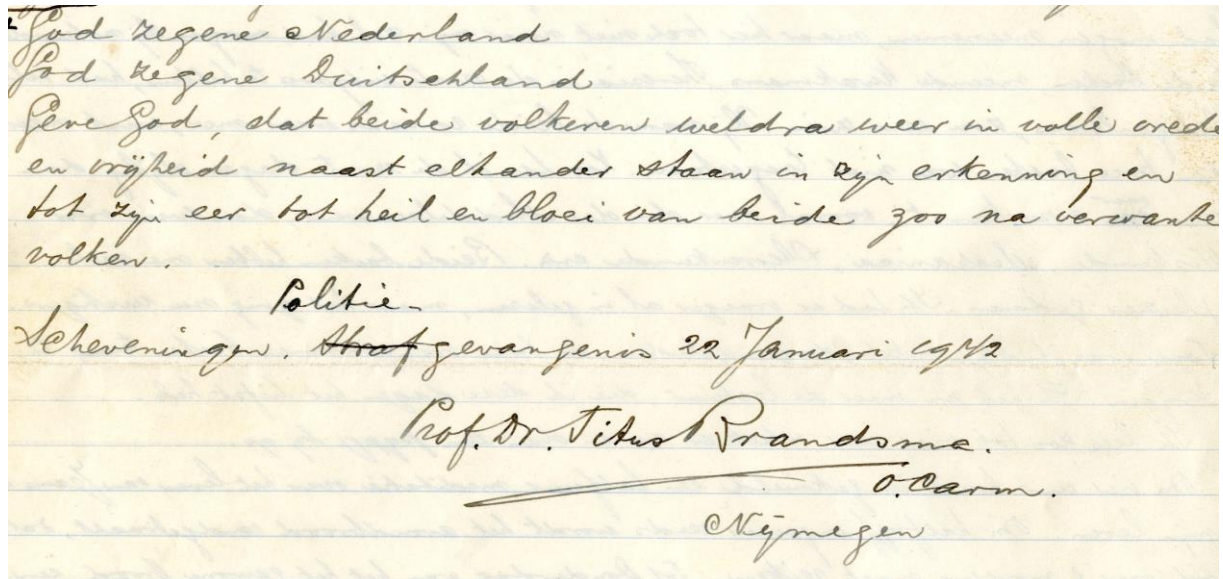 God zegene Nederland
God zegene Duitschland
Geve God, dat beide volkeren weldra weer in volle vrede
en vrijheid naast elkander staan in zijn erkenning en
tot zijn eer tot heil en bloei van beide zoo na verwante
volken.
Politie-
Scheveningen. Strafgevangenis 22 Januari 1942
Prof. Dr. Titus Brandsma.
O. Carm.
Nijmegen